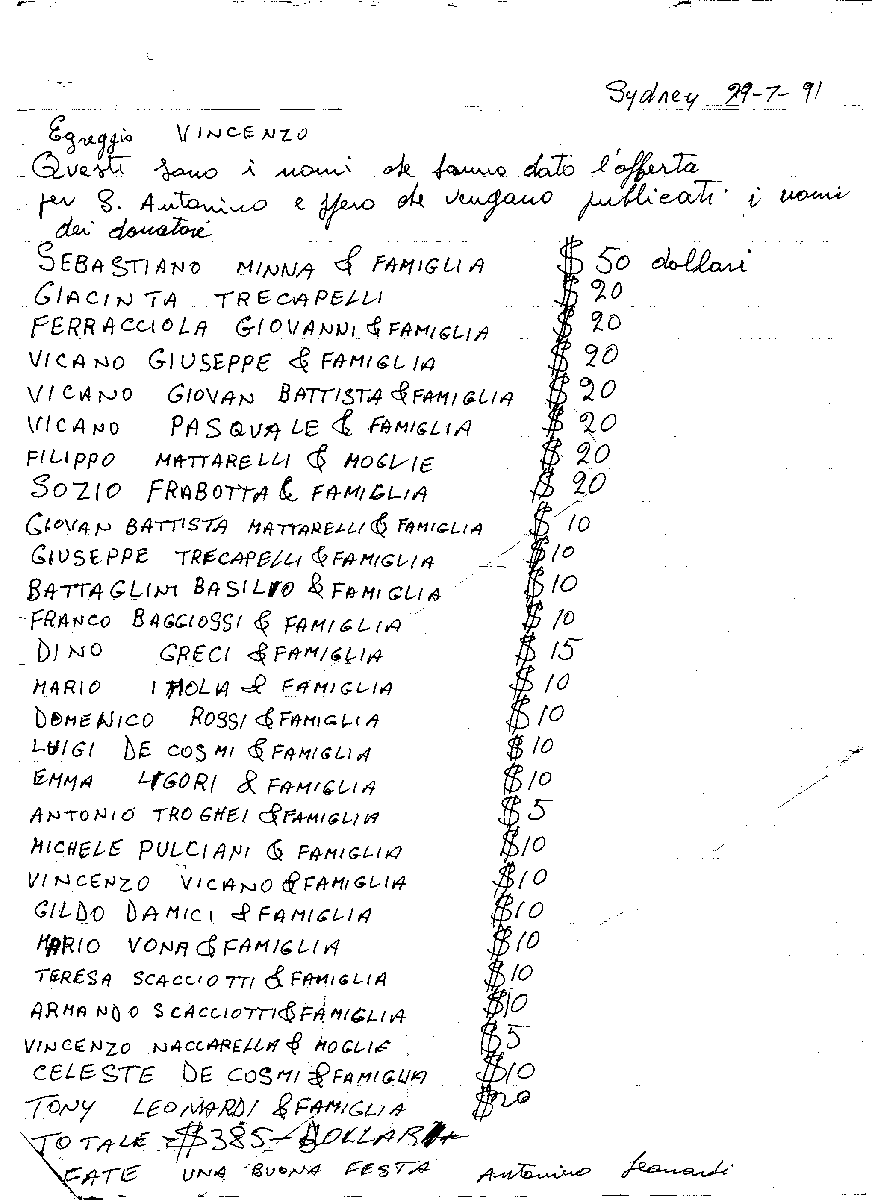 Sydney 29-7-91
Egreggio VINCENZO
Questi sono i nomi che hanno dato l'offerta
per S. Antonino e spero che vengano publicati i nomi
dei donatori
SEBASTIANO MINNA & FAMIGLIA $ 50 dollari
GIACINTA TRECAPELLI $ 20
FERRACCIOLA GIOVANNI & FAMIGLIA $ 20
VICANO GIUSEPPE & FAMIGLIA $ 20
VICANO GIOVAN BATTISTA & FAMIGLIA $ 20
VICANO PASQUALE & FAMIGLIA $ 20
FILIPPO MATTARELLI & MOGLIE $ 20
SOZIO FRABOTTA & FAMIGLIA $ 20
GIOVAN BATTISTA MATTARELLI & FAMIGLIA $ 10
GIUSEPPE TRECAPELLI & FAMIGLIA $ 10
BATTAGLINI BASILIO & FAMIGLIA $ 10
FRANCO BAGGIOSSI & FAMIGLIA $ 10
DINO GRECI & FAMIGLIA $ 15
MARIO IMOLA & FAMIGLIA $ 10
DOMENICO ROSSI & FAMIGLIA $ 10
LUIGI DE COSMI & FAMIGLIA $ 10
EMMA LIGORI & FAMIGLIA $ 10
ANTONIO TROGHEI & FAMIGLIA $ 5
MICHELE PULCIANI & FAMIGLIA $ 10
VINCENZO VICANO & FAMIGLIA $ 10
GILDO DAMICI & FAMIGLIA $ 10
MARIO VONA & FAMIGLIA $ 10
TERESA SCACCIOTTI & FAMIGLIA $ 10
ARMANDO SCACCIOTTI & FAMIGLIA $ 10
VINCENZO NACCARELLA & MOGLIE $ 5
CELESTE DE COSMI & FAMIGLIA $ 10
TONY LEONARDI & FAMIGLIA $ 20
TOTALE = $ 385 - DOLLARI
FATE UNA BUONA FESTA Antonino Leonardi